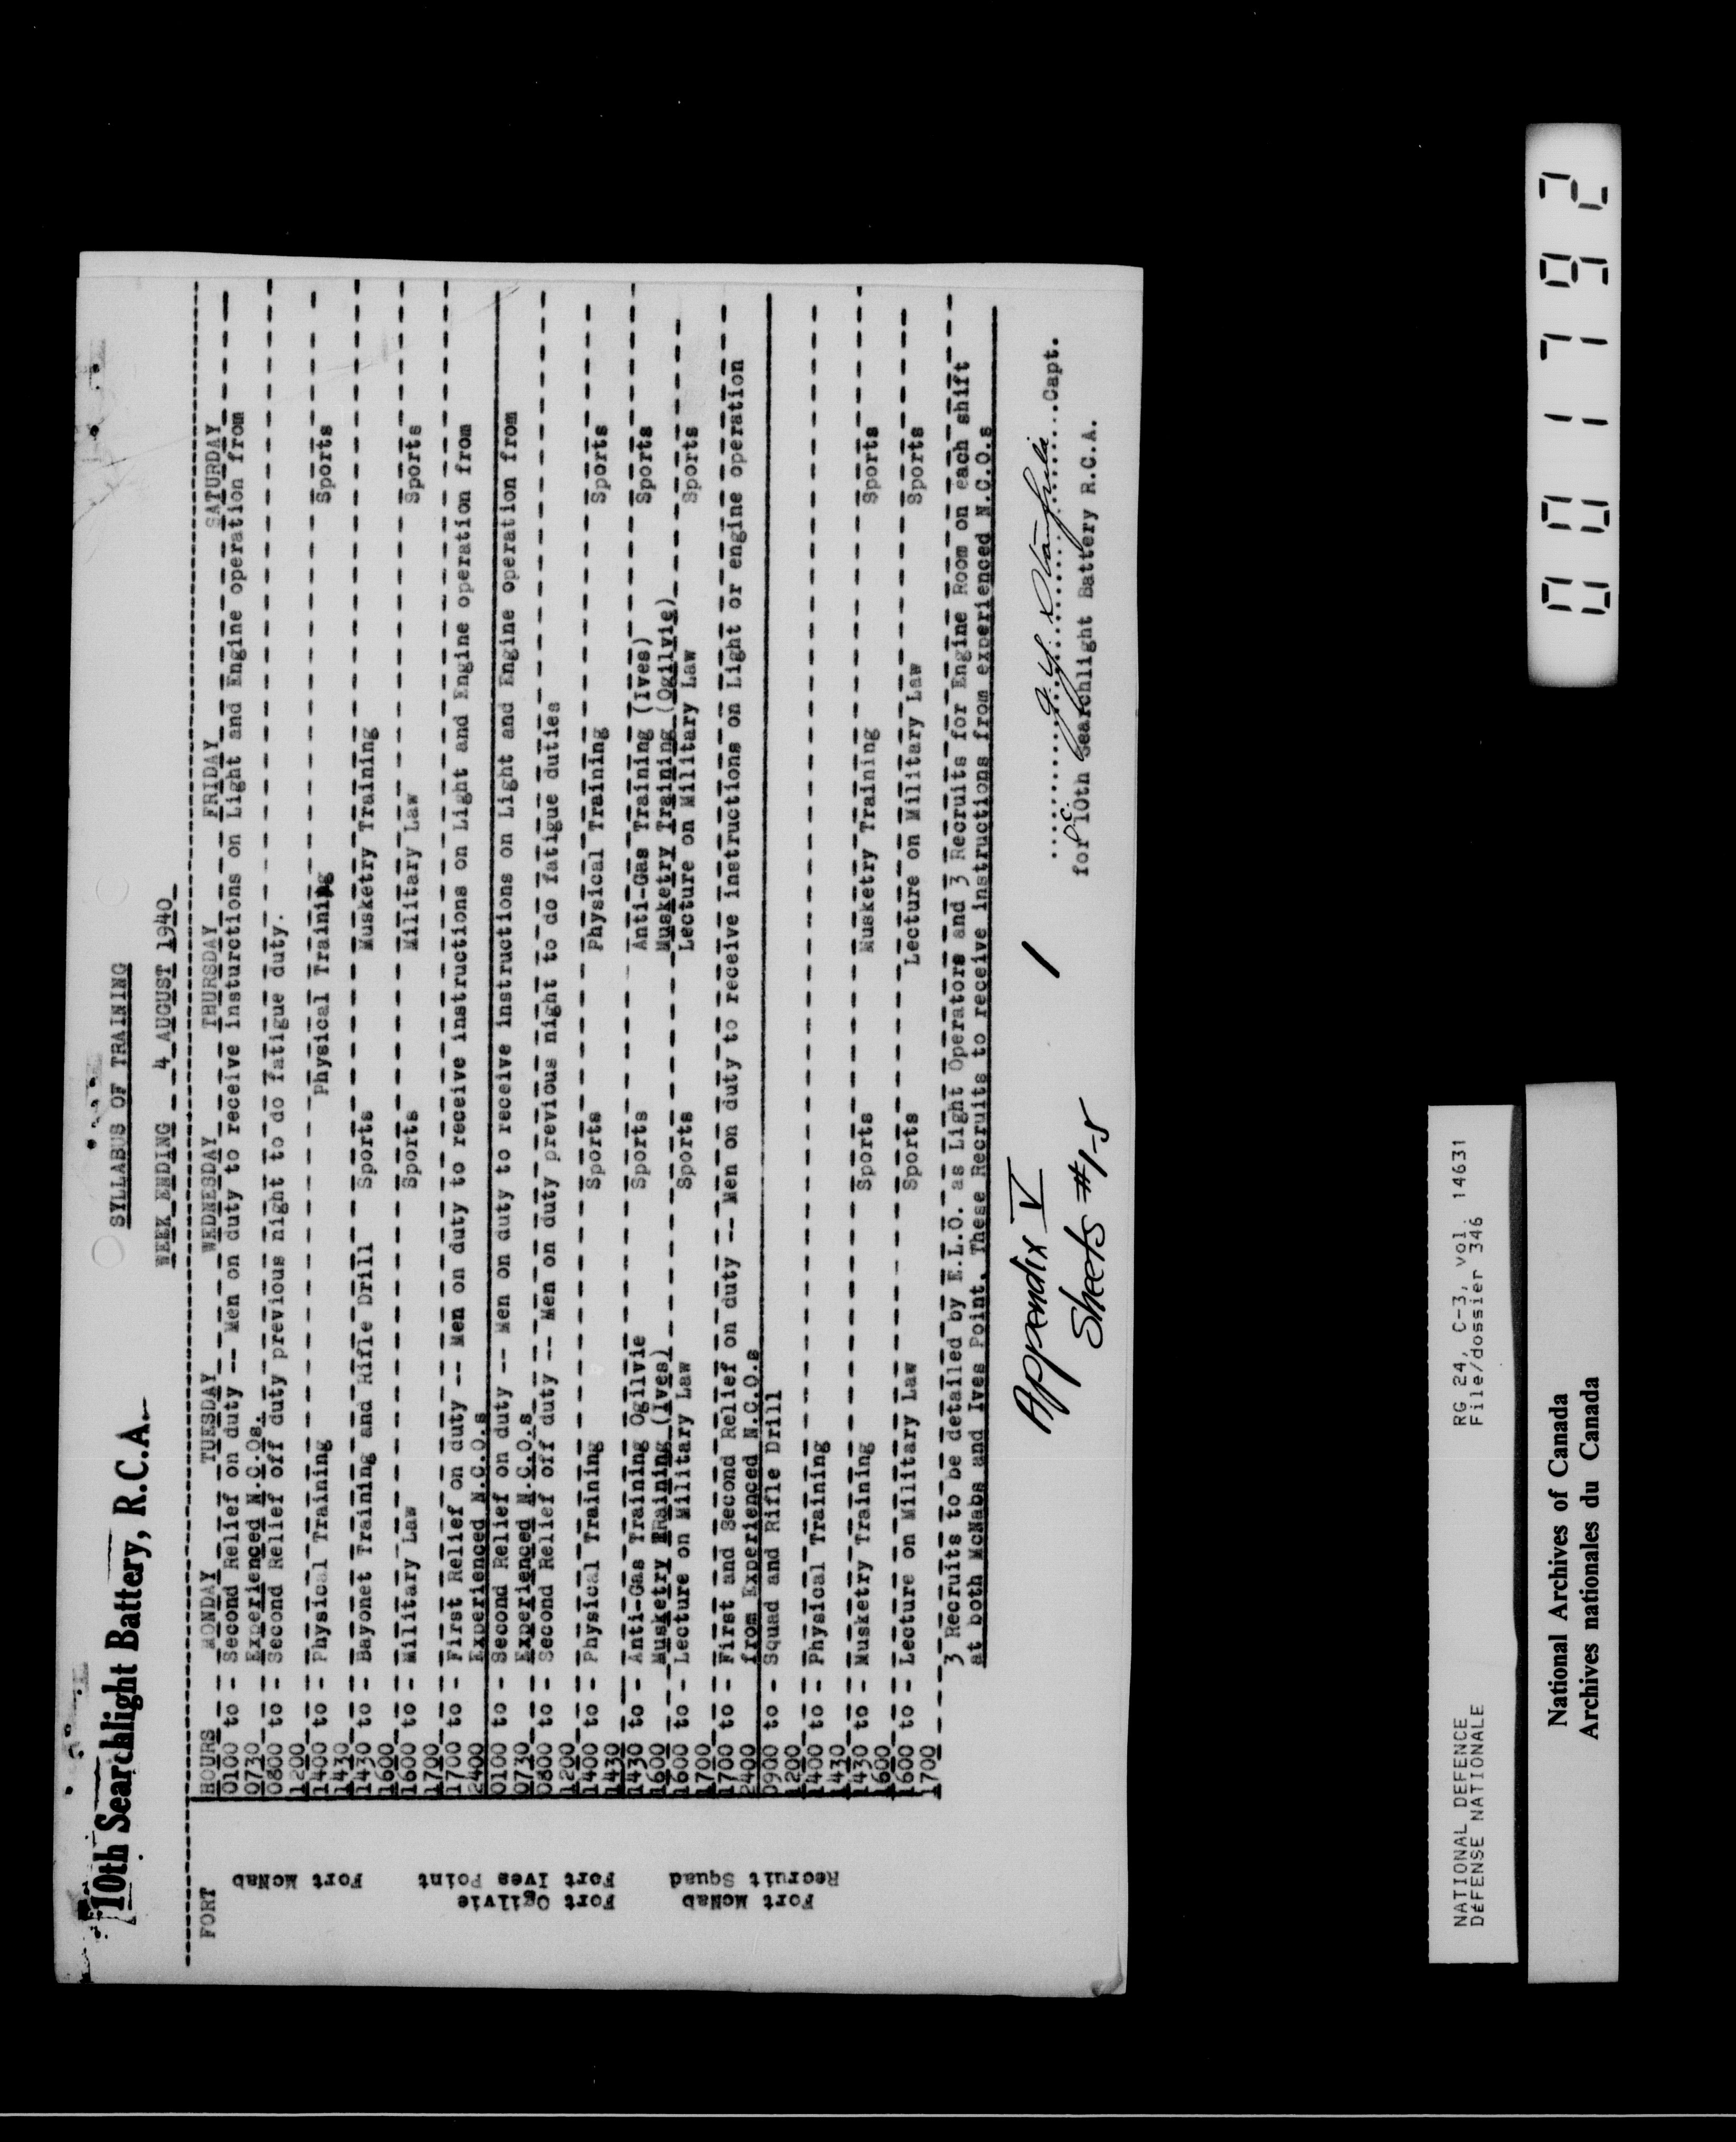 10th Searchlight Battery, R.C.A.
SYLLABUS OF TRAINING
WEEK ENDING 4 AUGUST 1940
FORT HOURS MONDAY TUESDAY WEDNESDAY THURSDAY FRIDAY SATURDAY
Fort McNab
0100 to - Second Relief on duty -- Men on duty to receive insturctions on Light and Engine operation from
0730 Experienced N.C.Os.
0800 to - Second Relief off duty previous night to do fatigue duty.
1200
1400 to - Physical Training Physical Training Sports
1430
1430 to - Bayonet Training and Rifle Drill Sports Musketry Training
1600
1600 to - Military Law Sports Military Law Sports
1700
1700 to - First Relief on duty -- Men on duty to receive instructions on Light and Engine operation from
2400 Experienced N.C.O.s
Fort Ogilvie
Fort Ives Point
0100 to - Second Relief on duty -- Men on duty to receive instructions on Light and Engine operation from
0730 Experienced N.C.O.s
0800 to - Second Relief off duty -- Men on duty previous night to do fatigue duties
1200
1400 to - Physical Training Sports Physical Training Sports
1430
1430 to - Anti-Gas Training Ogilvie Sports Anti-Gas Training (Ives) Sports
1600 Musketry TRaining (Ives) Musketry Training (Ogilvie)
1600 to - Lecture on Military Law Sports Lecture on Military Law Sports
1700
1700 to - First and Second Relief on duty -- Men on duty to receive instructions on Light or engine operation
2400 from Experienced N.C.O.s
Fort McNab
Recruit Squad
0900 to - Squad and Rifle Drill
1200
1400 to - Physical Training
1430
1430 to - Musketry Training Sports Musketry Training Sports
1600
1600 to - Lecture on Military Law Sports Lecture on Military Law Sports
1700
3 Recruits to be detailed by E.L.O. as Light Operators and 3 Recruits for Engine Room on each shift
at both McNabs and Ives Point. These Recruits to receive instructions from experienced N.C.O.s
Capt.
for 10th Searchlight Battery R.C.A.
1
Appendix V
Sheets #1-5
NATIONAL DEFENCE RG 24, C-3, vol. 14631
DÉFENSE NATIONALE File/dossier 346
National Archives of Canada
Archives nationales du Canada
001792